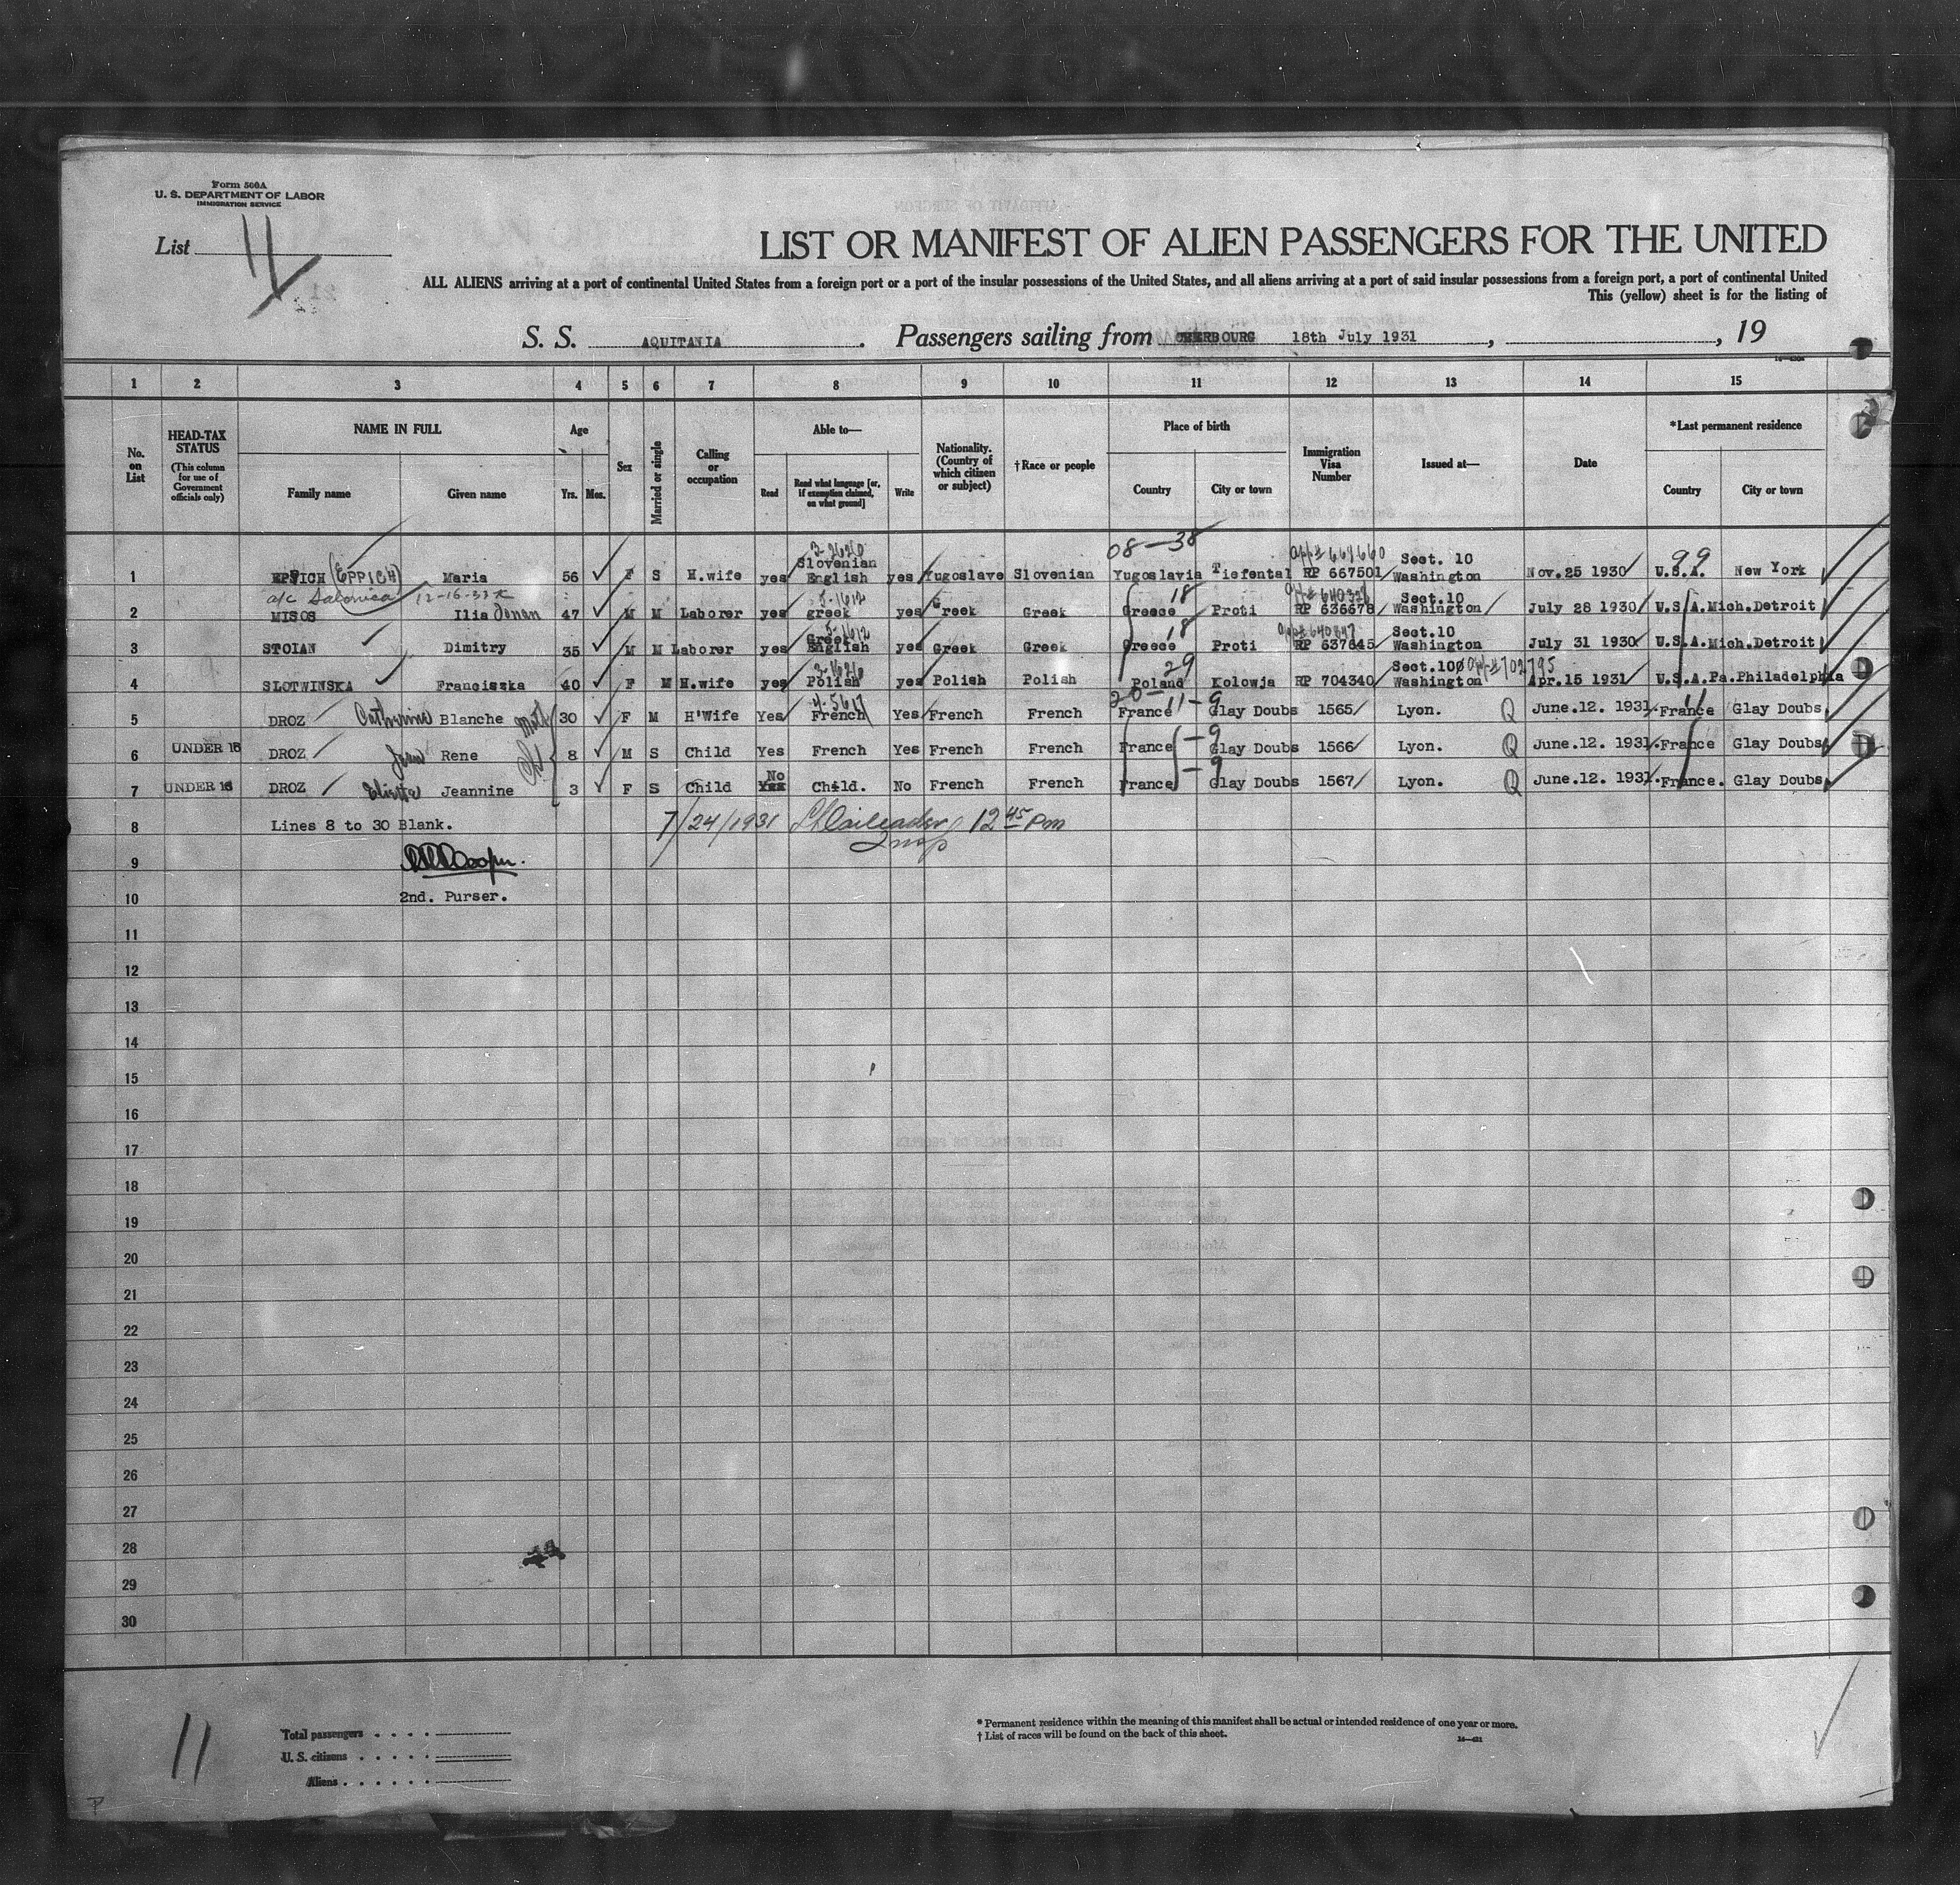 Form 500A
U. S. DEPARTMENT OF LABOR
IMMIGRATION SERVICE
List 11
LIST OR MANIFEST OF ALIEN PASSENGERS FOR THE UNITED
ALL ALIENS arriving at a port of continental United States from a foreign port or a port of the insular possessions of the United States, and all aliens arriving at a port of said insular possessions from a foreign port, a port of continental United
This (yellow) sheet is for the listing of
S. S. AQUITANIA . Passengers sailing from CHERBOURG 18th July 1931 , , 19
1 2 3 4 5 6 7 8 9 10 11 12 13 14 15
No. on List
HEAD-TAX STATUS (This column for use of Government officials only)
NAME IN FULL
Family name Given name
Age
Yrs. Mos.
Sex
Married or single
Calling or occupation
Able to—
Read
Read what language [or, if exemption claimed, on what ground]
Write
Nationality. (Country of which citizen or subject)
†Race or people
Place of birth
Country City or town
Immigration Visa Number
Issued at—
Date
*Last permanent residence
Country City or town
08—38
1 EPPICH (EPPICH) Maria 56 F S H.wife yes Slovenian English yes Yugoslave Slovenian Yugoslavia Tiefental RP 667501 Sect. 10 Washington Nov.25 1930 U.S.A. New York
99
12-16-33
2 MISOS Ilia 47 M M Laborer yes greek yes Greek Greek Greece Proti RP 636678 Sect.10 Washington July 28 1930 U.S.A.Mich.Detroit
18
3 STOIAN Dimitry 35 M M Laborer yes Greek English yes Greek Greek Greece Proti RP 637645 Sect.10 Washington July 31 1930 U.S.A.Mich.Detroit
18
4 SLOTWINSKA Franciszka 40 F M H.wife yes Polish yes Polish Polish Poland Kolowja RP 704340 Sect.10 Washington Apr.15 1931 U.S.A.Pa.Philadelphia
29
5 DROZ Catherine Blanche 30 F M H'Wife Yes French Yes French French France Glay Doubs 1565 Lyon. June.12. 1931. France Glay Doubs
6 UNDER 16 DROZ Jean Rene 8 M S Child Yes French Yes French French France Glay Doubs 1566 Lyon. June.12. 1931. France Glay Doubs
7 UNDER 16 DROZ Jeannine 3 F S Child No Yes Child. No French French France Glay Doubs 1567 Lyon. June.12. 1931. France. Glay Doubs
8 Lines 8 to 30 Blank. 7/24/1931 12 45 Pm
9
10 2nd. Purser.
11
12
13
14
15
16
17
18
19
20
21
22
23
24
25
26
27
28
29
30
11
Total passengers
U. S. citizens
Aliens
* Permanent residence within the meaning of this manifest shall be actual or intended residence of one year or more.
† List of races will be found on the back of this sheet.